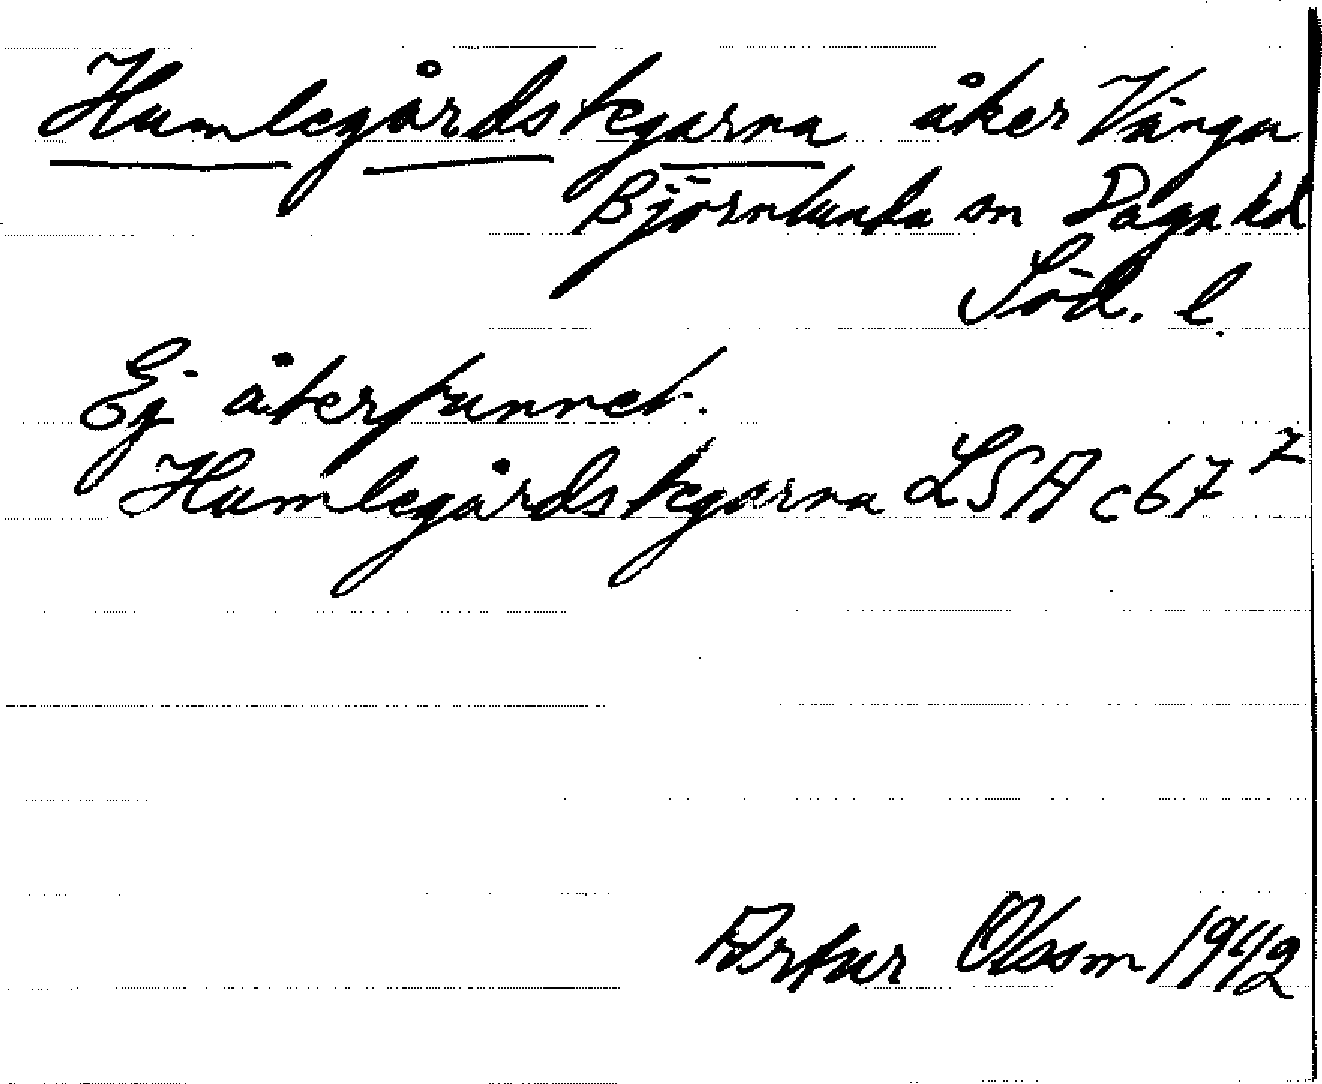 Humlegårdstegarna åker Vänga
Björnlunda sn Daga hd
Söd. l.
Ej återfunnet.
Humlegårdstegarna LSA c67 7
Artur Olsson 1942